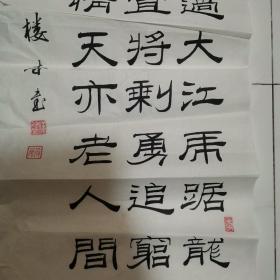 過大江虎踞龍
宜將剩勇追窮
情天亦老人間
樓